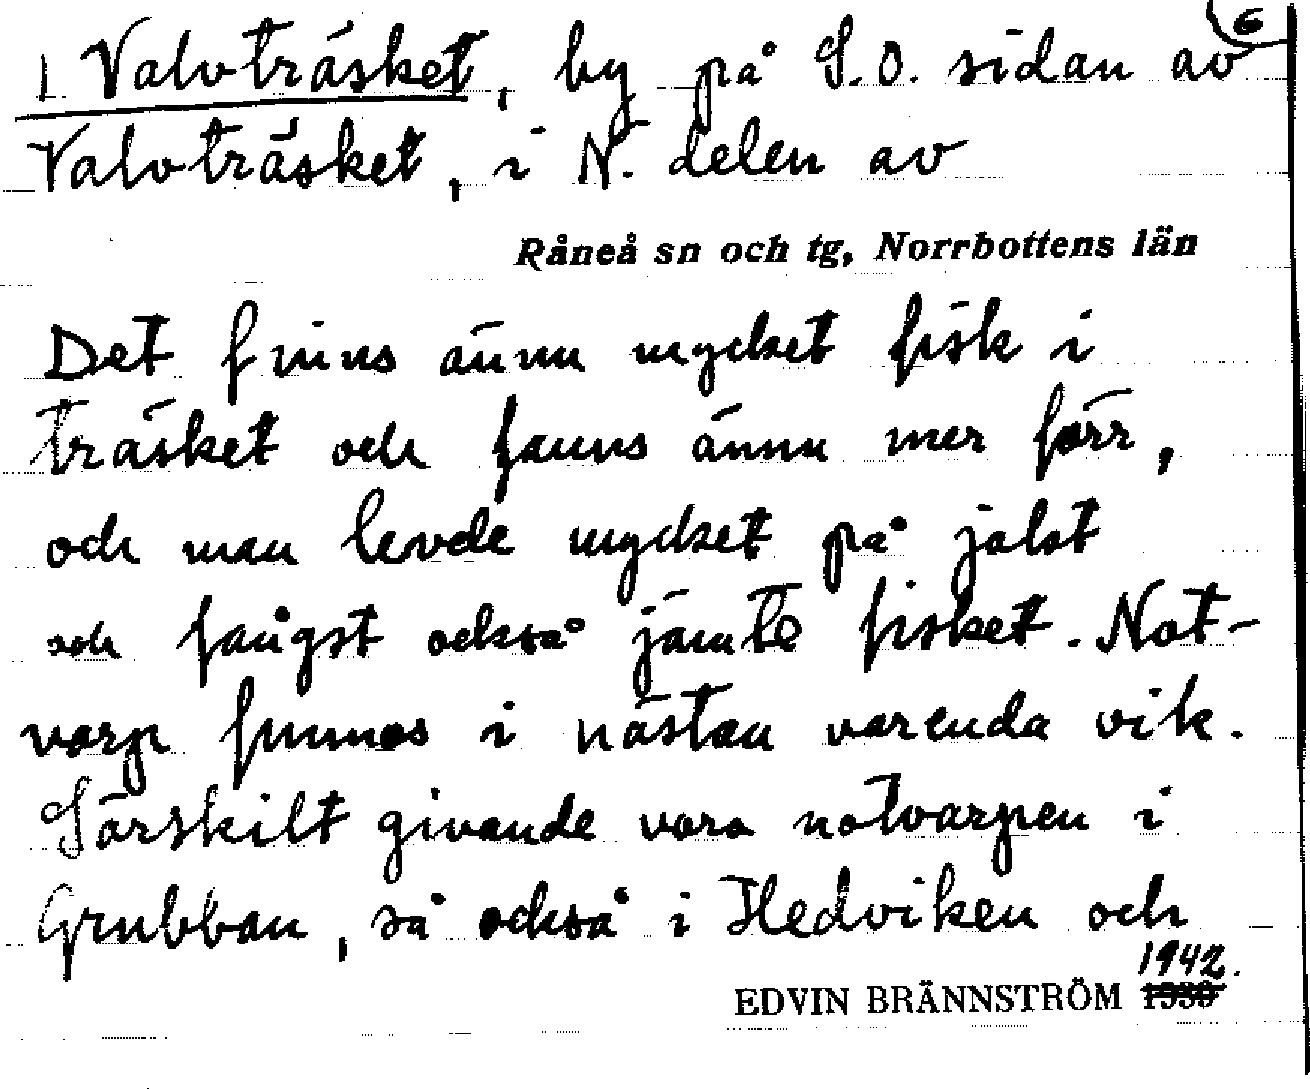 6
1 Valvträsket, by på S.O. sidan av
Valvträsket, i N. delen av
Råneå sn och tg, Norrbottens län
Det finns ännu mycket fisk i
träsket och fanns ännu mer förr,
och man levde mycket på jakt
och fångst också jämte fisket. Not-
varp funnos i nästan varenda vik.
Särskilt givande voro notvarpen i
Grubban, så också i Hedviken och
1942.
EDVIN BRÄNNSTRÖM 1930